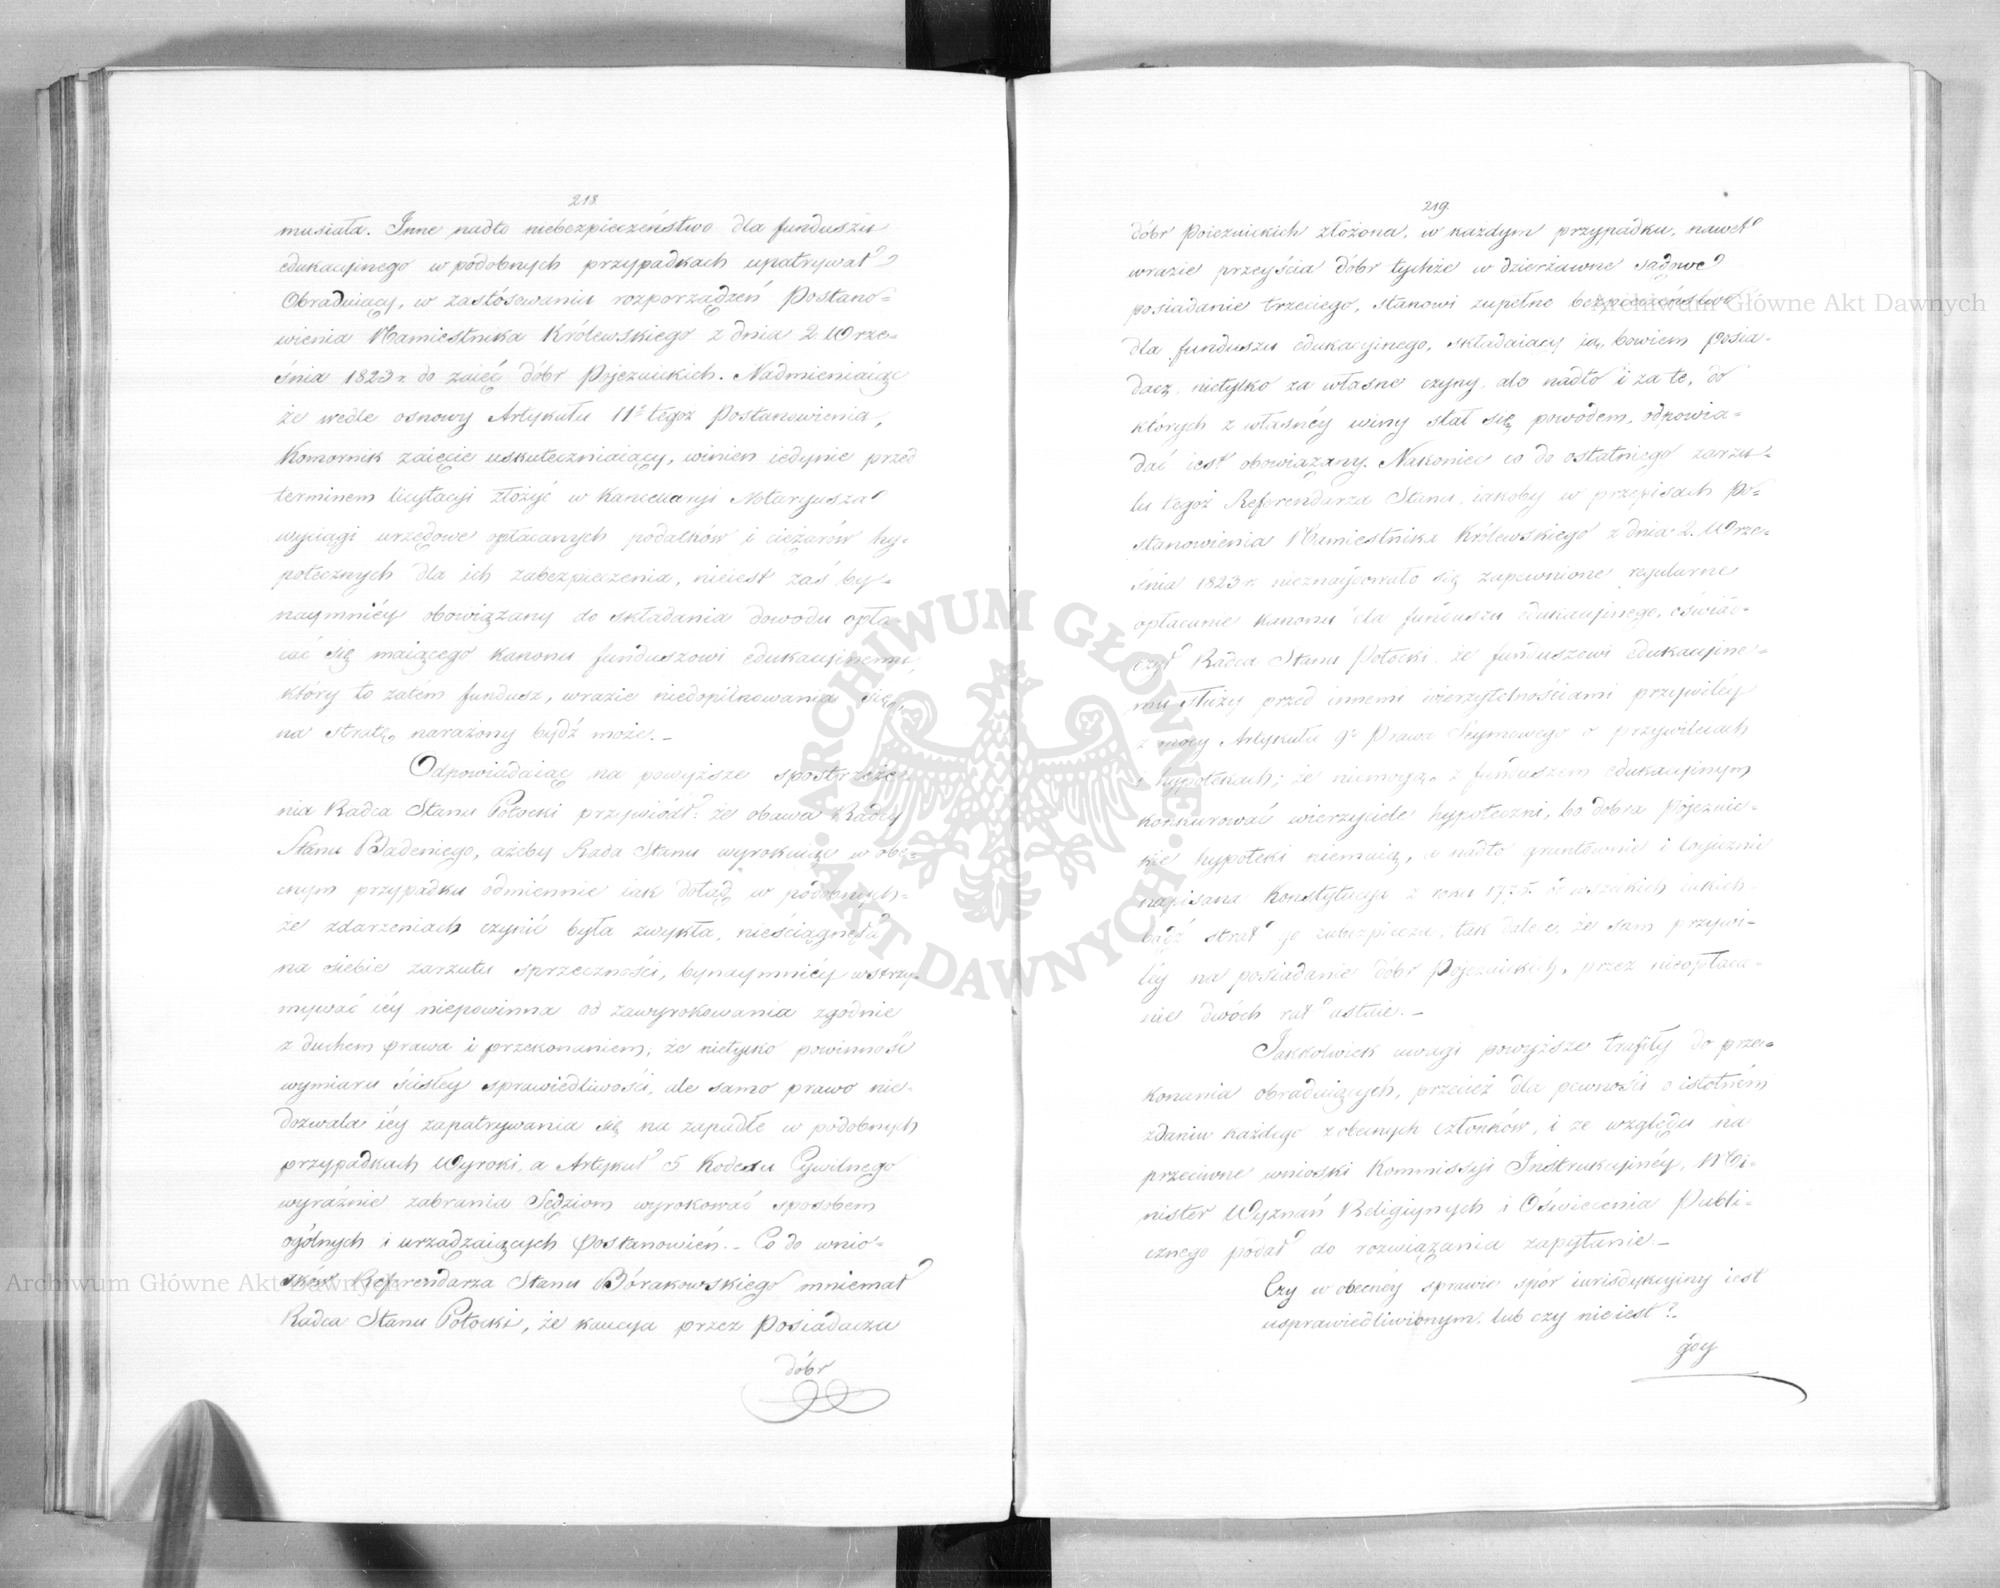 218.
musiała. Inne nadto niebezpieczeństwo dla funduszu
edukacyinego w podobnych przypadkach upatrywał
Obraduiący, w zastósowaniu rozporządzeń Postano-
wienia Namiestnika Królewskiego z dnia 2. Wrze-
śnia 1823 r. do zaięć dóbr Pojezuickich. Nadmieniaiąc
że wedle osnowy Artykułu 11º tegoż Postanowienia,
Komornik zaięcie uskuteczniaiący, winien iedynie przed
terminem licytacyi złożyć w Kancellaryi Notaryusza
wyciągi urzędowe opłacanych podatków i ciężarów hy-
potecznych dla ich zabezpieczenia, nieiest zaś by-
naymniéy obowiązany do składania dowodu opła-
cać się maiącego kanonu funduszowi edukacyinemu,
który to zatém fundusz, wrazie niedopilnowania się,
na stratę narażony bydź może. _
Odpowiadaiąc na powyższe spostrzeże-
nia Radca Stanu Potocki przywiódł: że obawa Radcy
Stanu Badeniego, ażeby Rada Stanu wyrokuiąc w obe-
cnym przypadku odmiennie iak dotąd w podobnych-
że zdarzeniach czynić była zwykła, nieściągnęła
na siebie zarzutu sprzeczności, bynaymniéy wstrzy-
mywać iéy niepowinna od zawyrokowania zgodnie
z duchem prawa i przekonaniem; że nietylko powinność
wymiaru ścisłey sprawiedliwości, ale samo prawo nie-
dozwala iéy zapatrywania się na zapadłe w podobnych
przypadkach Wyroki, a Artykuł 5 Kodexu Cywilnego
wyraźnie zabrania Sędziom wyrokować sposobem
ogólnych i urządzaiących postanowień. _ Co do wnio-
sków Referendarza Stanu Bórakowskiego mniemał
Radca Stanu Potocki, że kaucya przez Posiadacza
dóbr
219.
dóbr Poiezuickich złożona, w każdym przypadku, nawet
wrazie przeyścia dóbr tychże w dzierżawne sądowe
posiadanie trzeciego, stanowi zupełne bezpieczeństwo
dla funduszu edukacyinego, składaiący ią, bowiem posia-
dacz, nietylko za własne czyny, ale nadto i za te, do
których z własnéy winy stał się powodem, odpowia-
dać iest obowiązany. Nakoniec co do ostatniego zarzu-
tu tegoż Referendarza Stanu, iakoby w przepisach Po-
stanowienia Namiestnika Królewskiego z dnia 2. Wrze-
śnia 1823 r. nieznaydowało się zapewnione regularne
opłacanie kanonu dla funduszu edukacyinego, oświad-
czył Radca Stanu Potocki, że funduszowi edukacyine-
mu służy przed innemi wierzytelnościami przywiléy
z mocy Artykułu 9º Prawa Seymowego o przywileiach
i hypotekach; że niemogą z funduszem edukacyinym
konkurować wierzyciele hypoteczni, bo dobra Pojezuic-
kie hypoteki niemaią, a nadto gruntownie i logicznie
napisana Konstytucya z roku 1775. od wszelkich iakich-
bądź strat go zabezpiecza, tak dalece, że sam przywi-
léy na posiadanie dóbr Pojezuickich, przez nieopłaca-
nie dwóch rat ustaie. _
Jakkolwiek uwagi powyższe trafiły do prze-
konania obraduiących, przecież dla pewności o istotném
zdaniu każdego z obecnych Członków, i ze względu na
przeciwne wnioski Kommissyi Instrukcyinéy, Mi-
nister Wyznań Religiynych i Oświecenia Publi-
cznego podał do rozwiązania zapytanie. _
Czy w obecnéy sprawie spór iurisdykcyiny iest
usprawiedliwionym, lub czy nieiest?.
gdy
Archiwum Główne Akt Dawnych
Archiwum Główne Akt Dawnych
ARCHIWUM GŁÓWNE AKT DAWNYCH